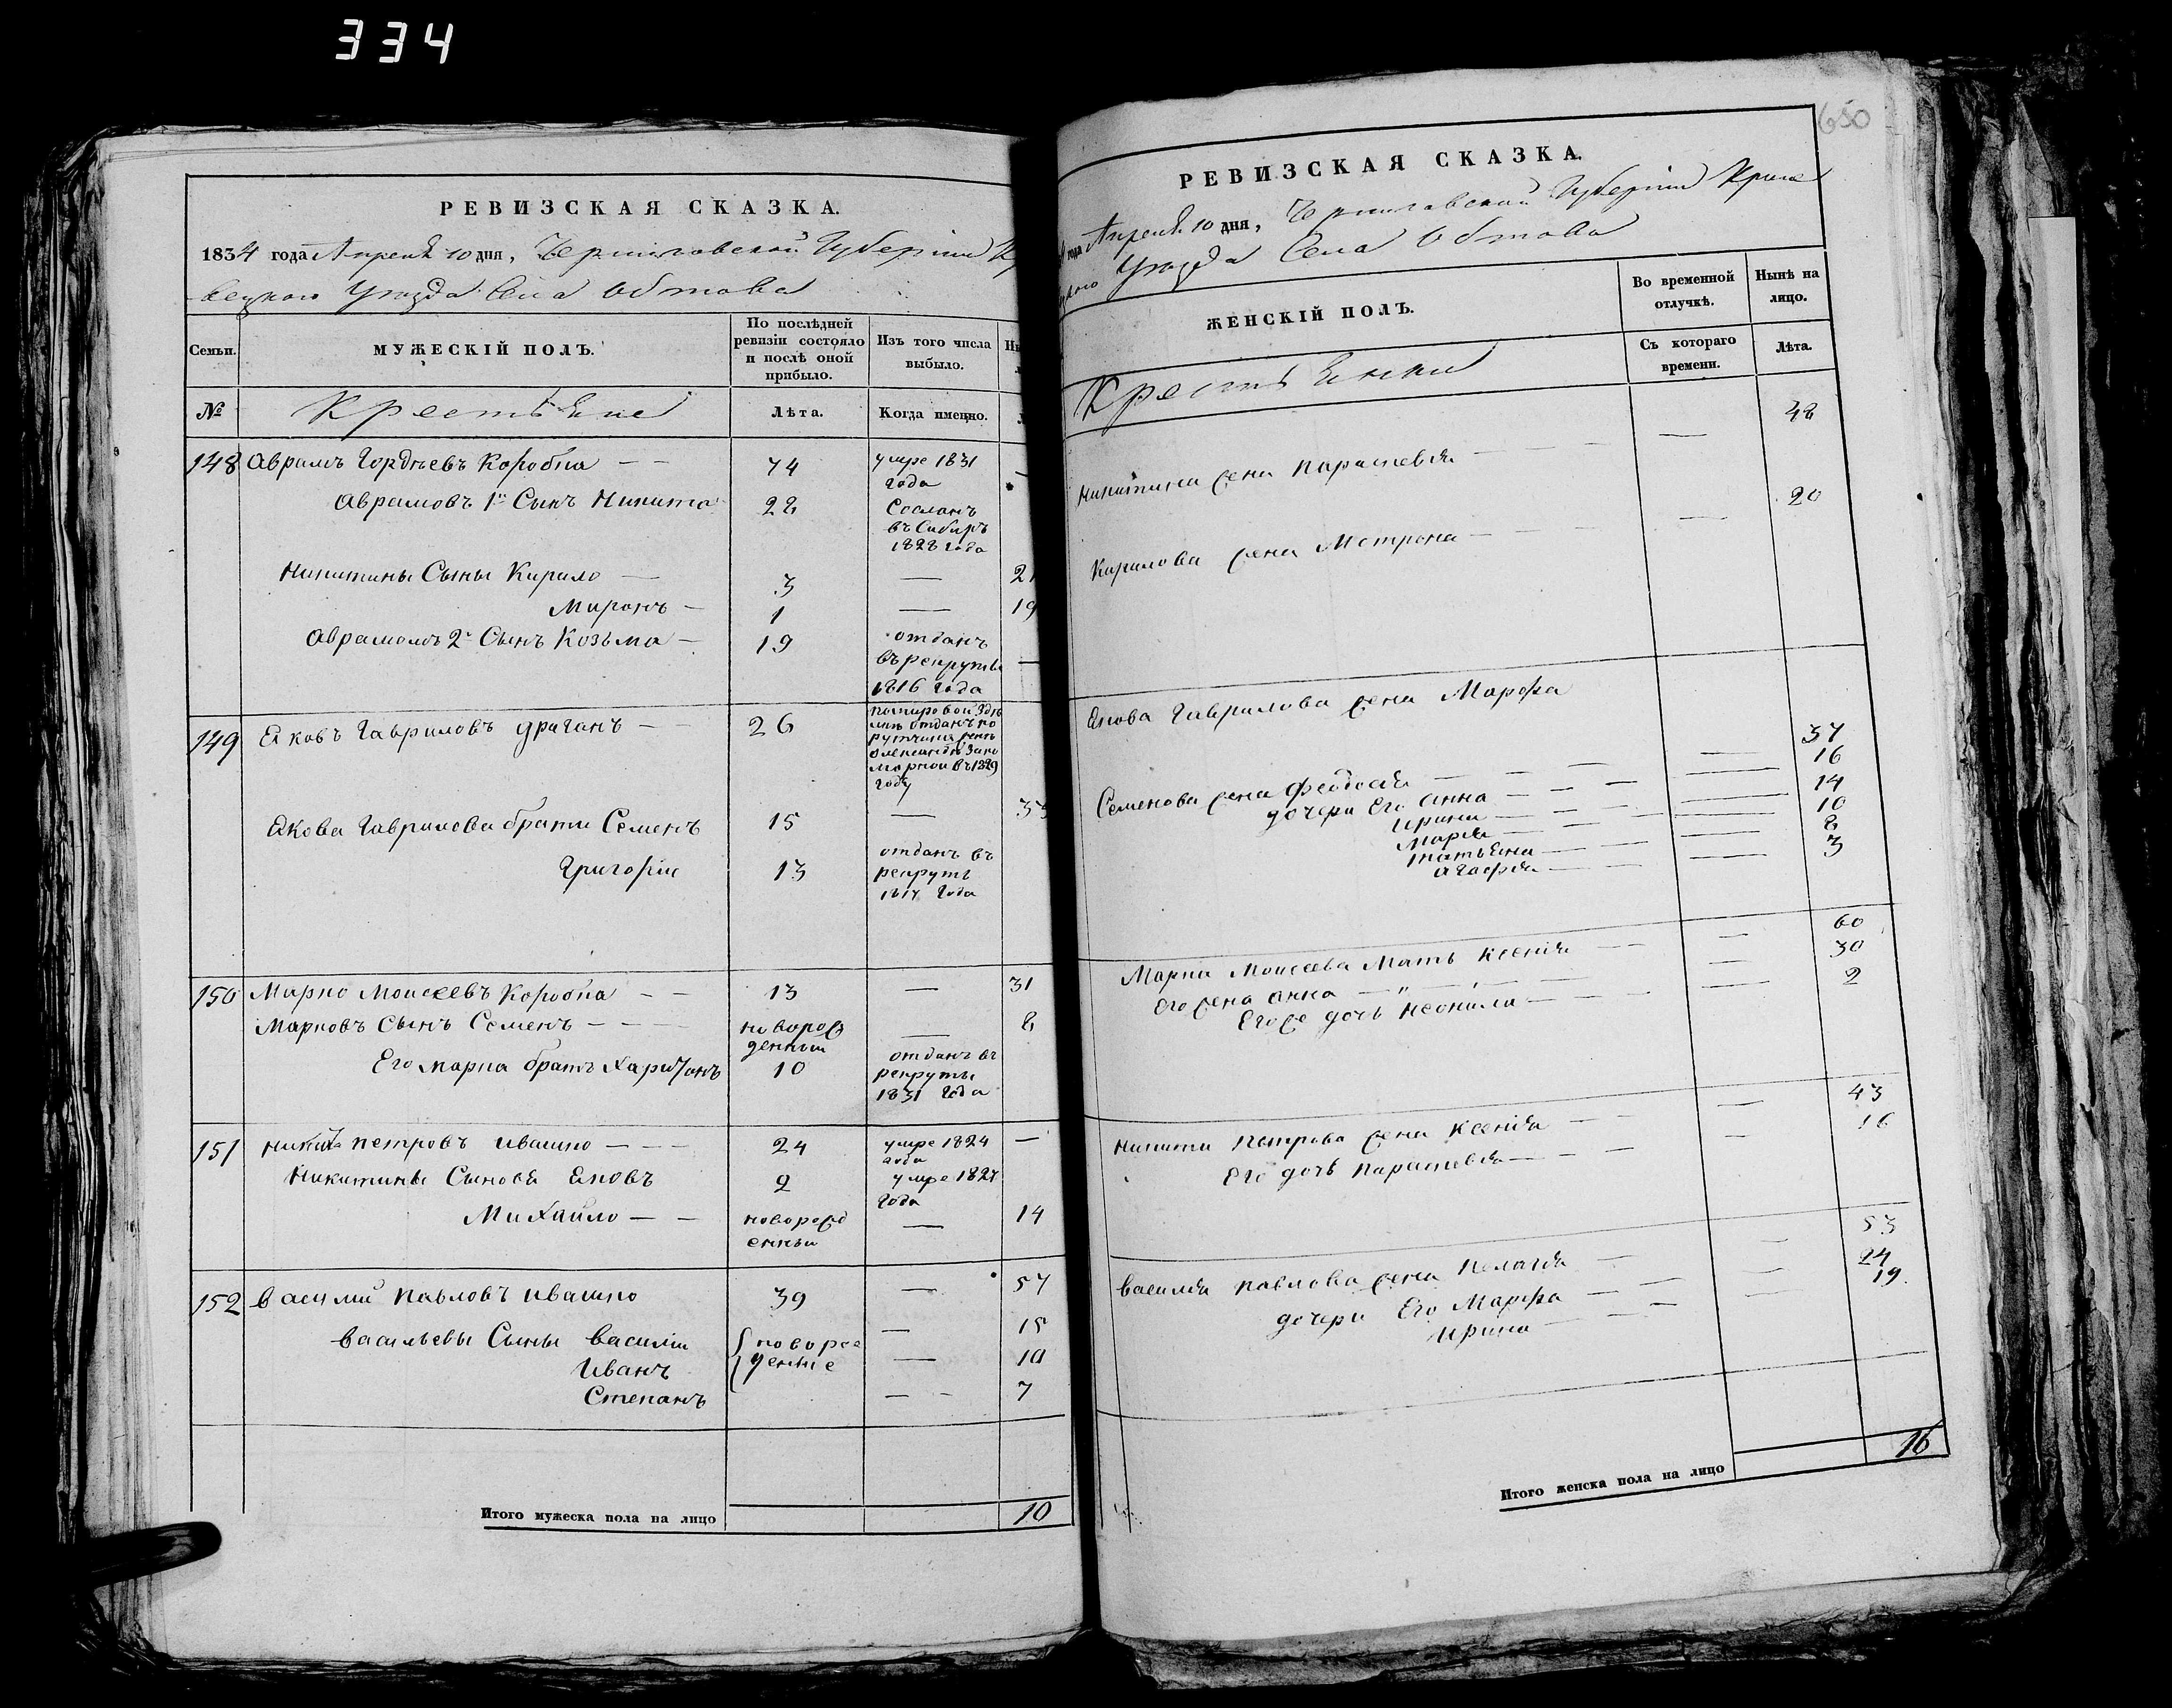 334
РЕВИЗСКАЯ СКАЗКА.
1834 года Апреля 10 дня, Черниговской Губернии
вецкого Уезда Села Обтова
Семьи.
МУЖЕСКІЙ ПОЛЪ.
По послѣдней ревизіи состояло и послѣ оной прибыло.
Изъ того числа выбыло.
№
Крестьяне
Лѣта.
Когда именно.
148 Аврамъ Гордѣевъ Коробка — — 74 умре 1831 года —
Аврамовъ 1й Сынъ Никита 28 Сосланъ въ Сибирь 1828 года
Никитины Сыны Кирило — 3 — 21
Миронъ — 1 — 19
Аврамовъ 2й Сынъ Козьма — 19 отданъ въ рекруты 1816 года —
149 Яковъ Гавриловъ Драганъ — 26 отданъ в 1829 году
Якова Гаврилова братя Семенъ 15 —
Григорій 13 отданъ въ рекруты 1817 года
150 Марко Моисеевъ Коробка — — 13 — 31
Марковъ Сынъ Семенъ — — — новорож денный — 8
Его Марка братъ Харитонъ 10 отданъ въ рекруты 1831 года
151 Никита Петровъ Ивашко — — — 24 умре 1824 года —
Никитины Сыновя Яковъ 2 умре 1827 года
Михайло — — новорожд енный — 14
152 Василий Павловъ Ивашко 39 — 57
Васильевы Сыны Василій новорож — 15
Иванъ денные — 10
Степанъ — — 7
Итого мужеска пола на лицо 10
650
РЕВИЗСКАЯ СКАЗКА.
года Апреля 10 дня, Черниговской Губернии Кроле
Уезда Села Обтова
ЖЕНСКІЙ ПОЛЪ.
Во временной отлучкѣ.
Нынѣ на лицо.
Крестьянки
Съ котораго времени.
Лѣта.
Никитина жена Параскевія — — — — 48
Кирилова жена Мотрона — — — — 20
Якова Гаврилова жена Марфа
Семенова жена Феодосія — — — — 37
дочери Его Анна — — — — 16
Ирина — — — — 14
Марія — — — 10
Татьяна — — — 8
Агафія — — — 3
Марка Моисеева Мать Ксенія — — — 60
Его жена Анна — — — — 30
Его же дочь Неонила — — — — 2
Никиты Петрова жена Ксенія — — — 43
Его дочь Параскевія — — — — 16
Василія Павлова жена Пелагія — — 53
дочери Его Марфа — — — 24
Ирина — — — 19.
Итого женска пола на лицо 16